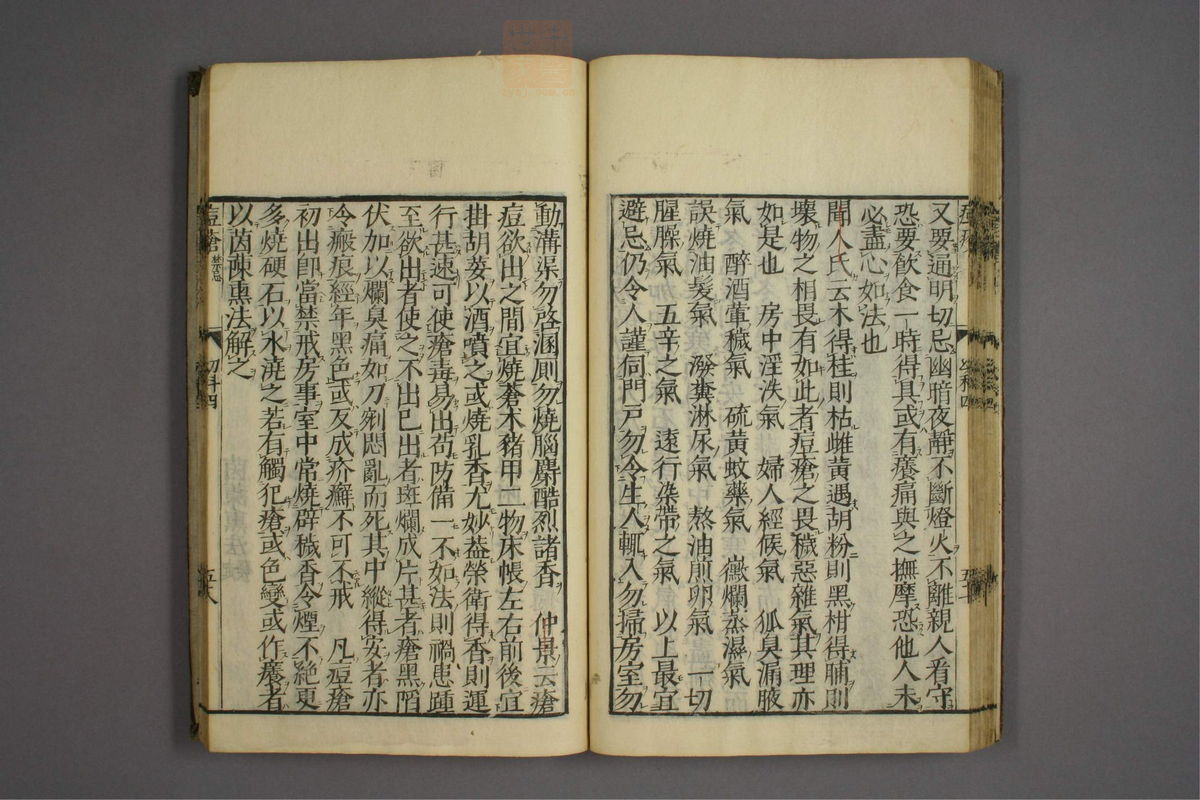 又要通明切忌幽暗夜靜不斷燈火不離親人看守
恐要飲食一時得具或有癢痛與之撫摩恐他人未
必盡心如法也
聞人氏云木得桂則枯雌黃遇胡粉則黑柑得脯則
壞物之相畏有如此者痘瘡之畏穢惡雜氣其理亦
如是也　房中淫泆氣　婦人經候氣　狐臭漏腋
氣　醉酒葷穢氣　硫黃蚊藥氣　黴爛蒸濕氣
誤燒油髮氣　潑糞淋尿氣　熬油煎卵氣　一切
腥臊氣　五辛之氣　遠行染帶之氣　以上最宜
避忌仍令人謹伺門戸勿令生人輒入勿掃房室勿
動溝渠勿啓溷厠勿燒腦麝酷烈諸香　仲景云瘡
痘欲出之間宜燒蒼术豬甲二物床帳左右前後宜
掛胡荽以酒噴之或燒乳香尤妙葢榮衛得香則運
行甚速可使瘡毒易出苟防備一不如法則禍患踵
至欲出者使之不出已出者斑爛成片甚者瘡黑陷
伏加以爛臭痛如刀剜悶亂而死其中縱得安者亦
令瘢痕經年黑色或反成疥癬不可不戒　凡痘瘡
初出卽當禁戒房事室中常燒辟穢香令煙不絶更
多燒硬石以水澆之若有觸犯瘡或色變或作癢者
以茵陳熏法解之
痘瘡　禁忌　幼科四　五十八